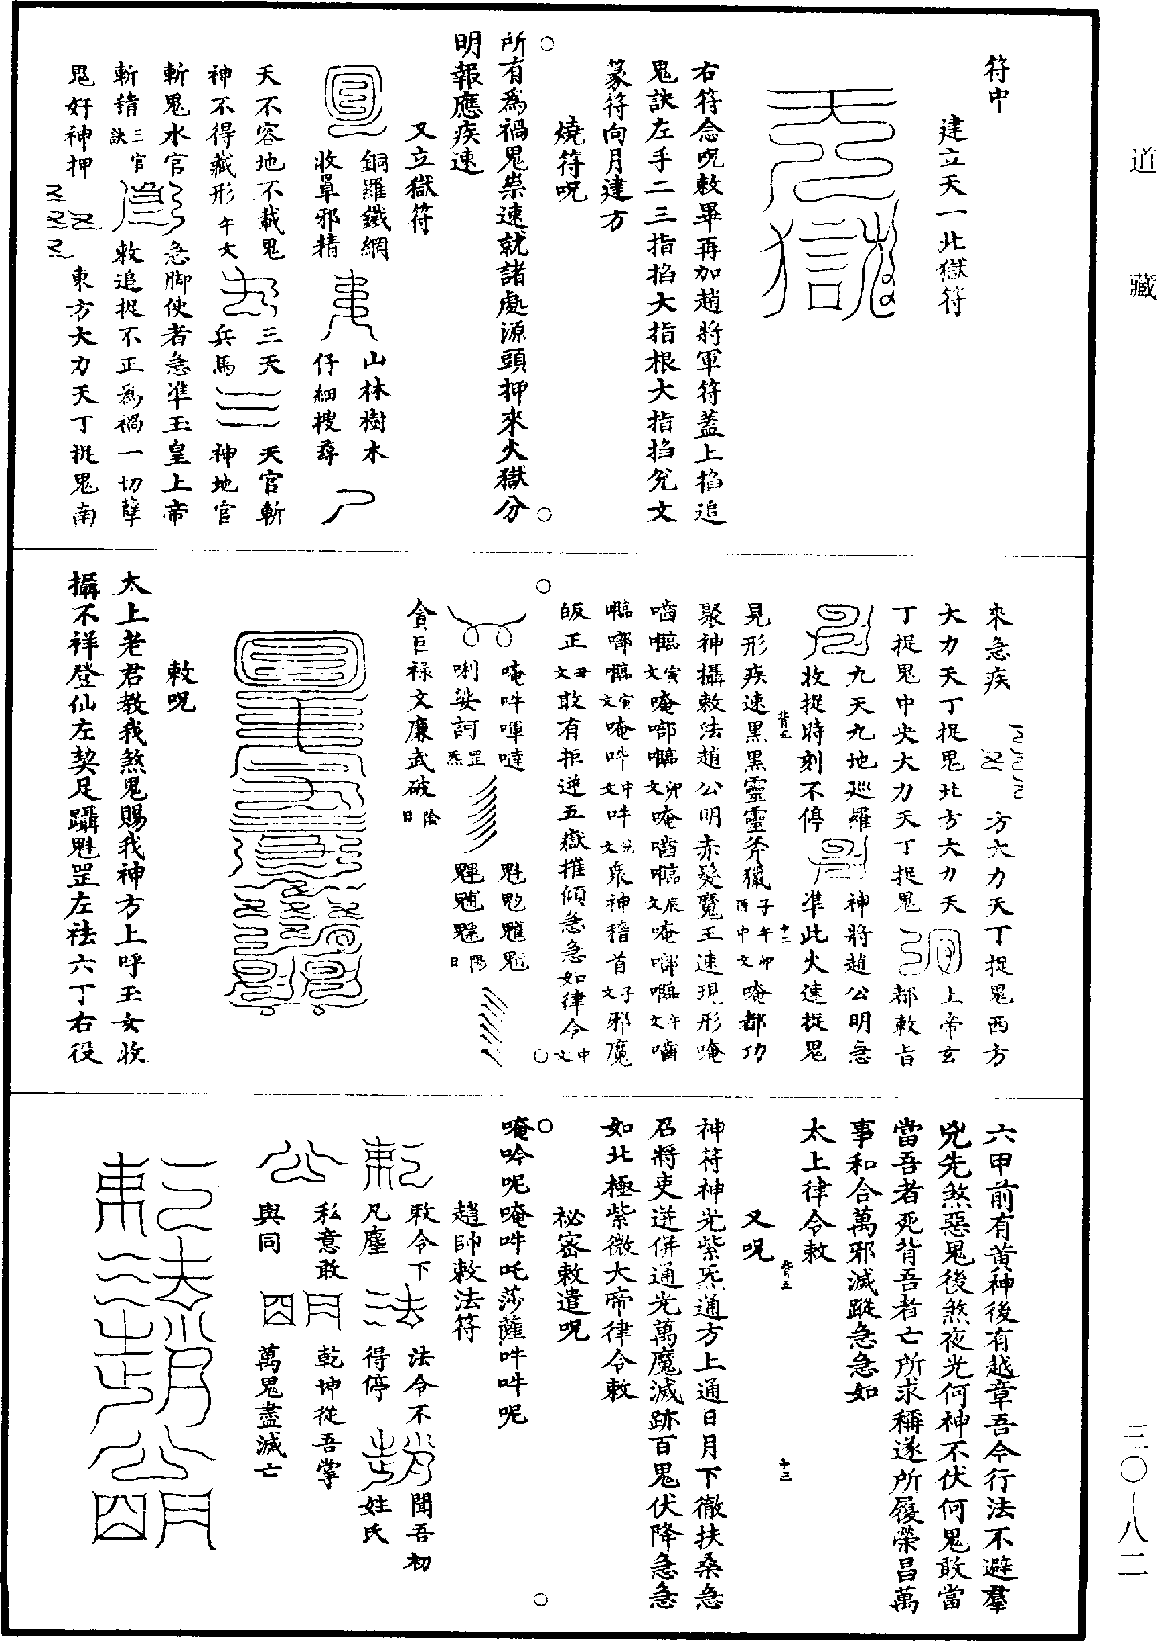 道藏
三〇—八二
符中
建立天一北獄符
右符念呪敕畢再加趙將軍符蓋上掐追
鬼訣左手二三指掐大指根大指掐兌文
篆符向月建方
燒符呪
所有為禍鬼祟速就諸處源頭押來火獄分
明報應疾速
又立獄符
銅羅鐵網
收罩邪精
山林樹木
仔細搜尋
天不容地不載鬼
神不得藏形午文
三天
兵馬
天官斬
神地官
斬鬼水官
斬精三官訣
急脚使者急准玉皇上帝
敕追捉不正為禍一切孽
鬼奸神押
東方大力天丁捉鬼南
來急疾
方大力天丁捉鬼西方
大力天丁捉鬼北方大力天
丁捉鬼中央大力天丁捉鬼
上帝玄
都敕旨
九天九地巡羅
收捉時刻不停
神將趙公明急
準此火速捉鬼
見形疾速黑黑靈靈斧獄子午卯酉中文唵都功
聚神攝敕法趙公明赤髮魔王速現形唵
嚙𠿝寅文唵啷𠿝卯文唵嚙𠿝辰文唵啷𠿝午文嚙
𠿝啷𠿝寅文唵吽中文吽兌文眾神稽首子文邪魔
皈正丑文敢有拒逆五嶽摧傾急急如律令中文
唵吽㖶噠
唎娑訶罡炁
魁䰢䰧䰨
魓䰩䰪陽日
貪巨祿文廉武破陰日
敕呪
太上老君教我煞鬼賜我神方上呼玉女收
攝不祥登仙左契足躡魁罡左祛六丁右役
六甲前有黃神後有越章吾今行法不避羣
兇先煞惡鬼後煞夜光何神不伏何鬼敢當
當吾者死背吾者亡所求稱遂所履榮昌萬
事和合萬邪滅蹤急急如
太上律令敕
又呪
十三
神符神光紫炁通方上通日月下徹扶桑急
召將吏遊併通光萬魔滅跡百鬼伏降急急
如北極紫微大帝律令敕
祕密敕遣呪
唵吟呢唵吽吒莎薩吽吽呢
趙帥敕法符
敕令下
凡塵
法令不
得停
聞吾初
姓氏
私意敢
與同
乾坤從吾掌
萬鬼盡滅亡